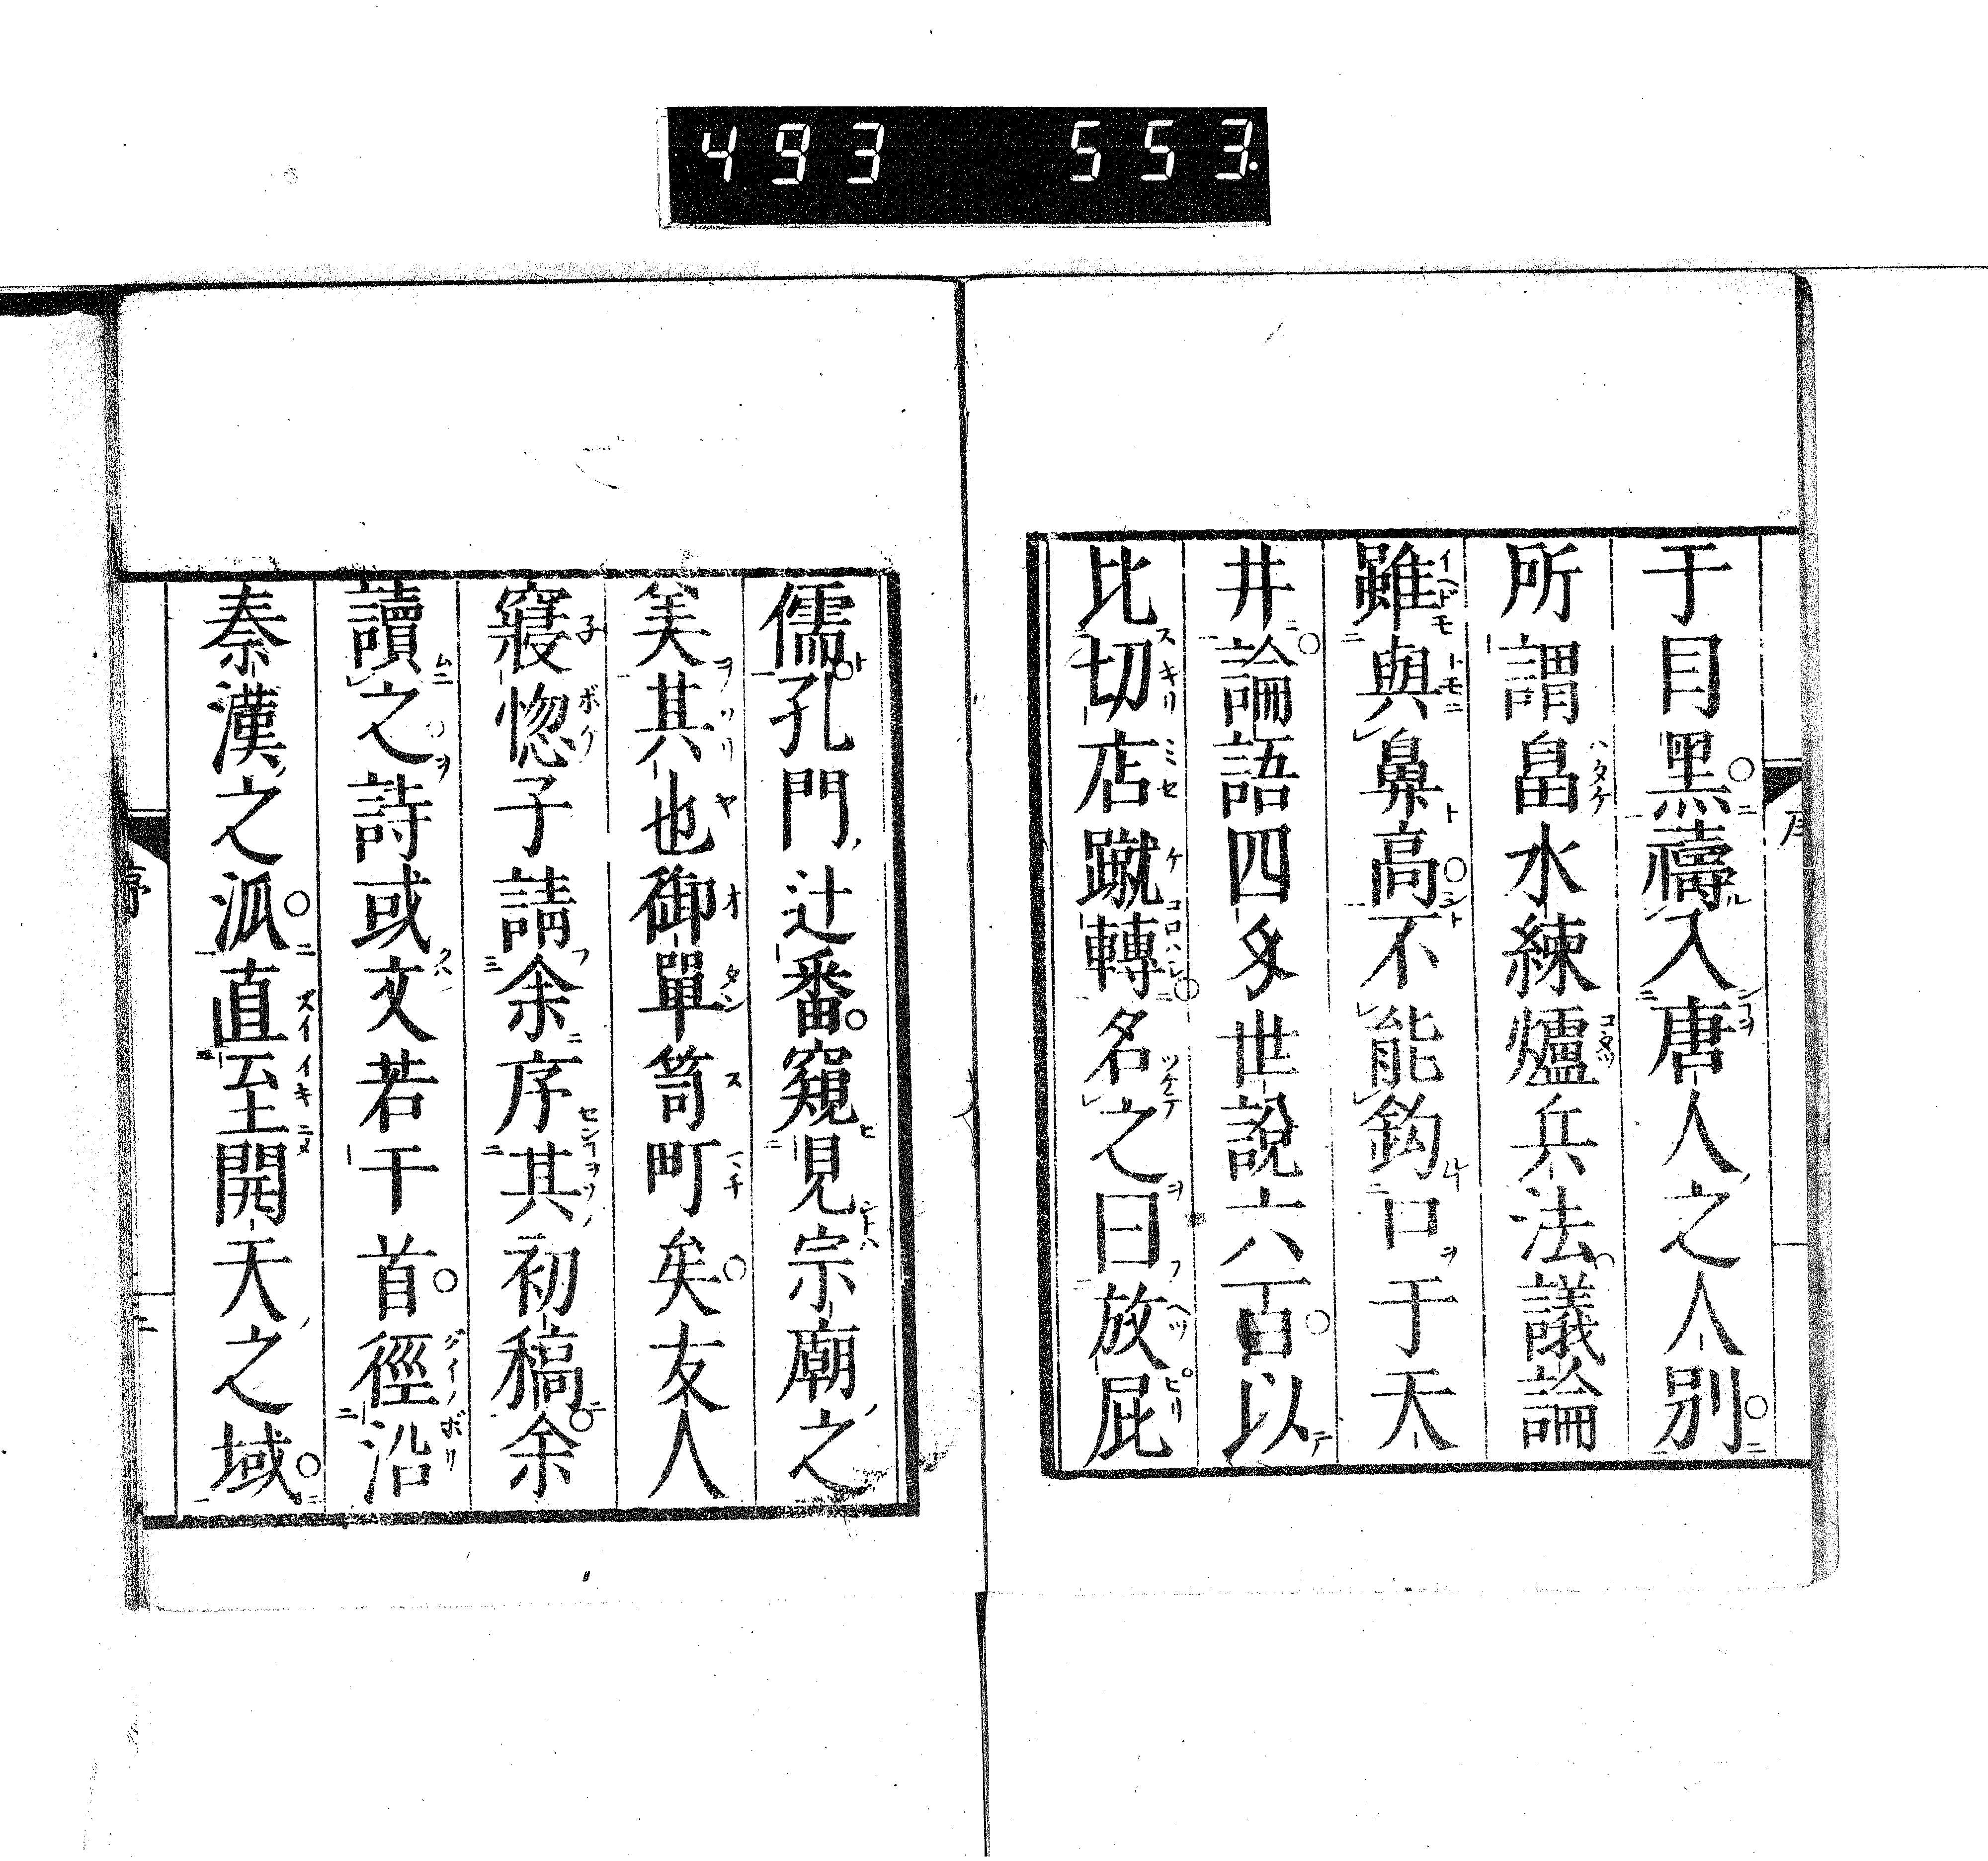 493 553
于目黑禱入唐人之人別
所謂畠水練爐兵法議論
雖與鼻高不能鈎口于天
井論語四多世說六百以
比切店蹴轉名之曰放屁
儒孔門辻番窺見宗廟之
美其也御單笥町矣友人
寢惚子請余序其初稿余
讀之詩或文若干首徑沿
秦漢之派直至開天之域
序